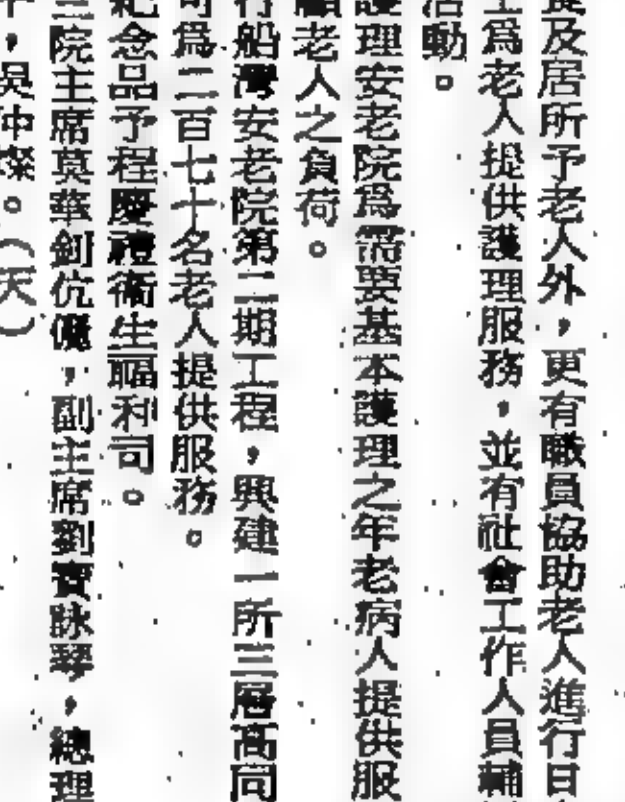 及居所予老人外，更有職員協助老人進行日
為老人提供護理服務，並有社會工作人員輔
活動。
護理安老院為需要基本護理之年老病人提供服
顧老人之負荷。
行船灣安老院第二期工程，興建一所三層高同
可為二百七十名老人提供服務。
紀念品予程慶禮衛生福利司。
三院主席莫華釗伉儷，副主席劉寶詠琴，總理
，吳仲燦。（天）